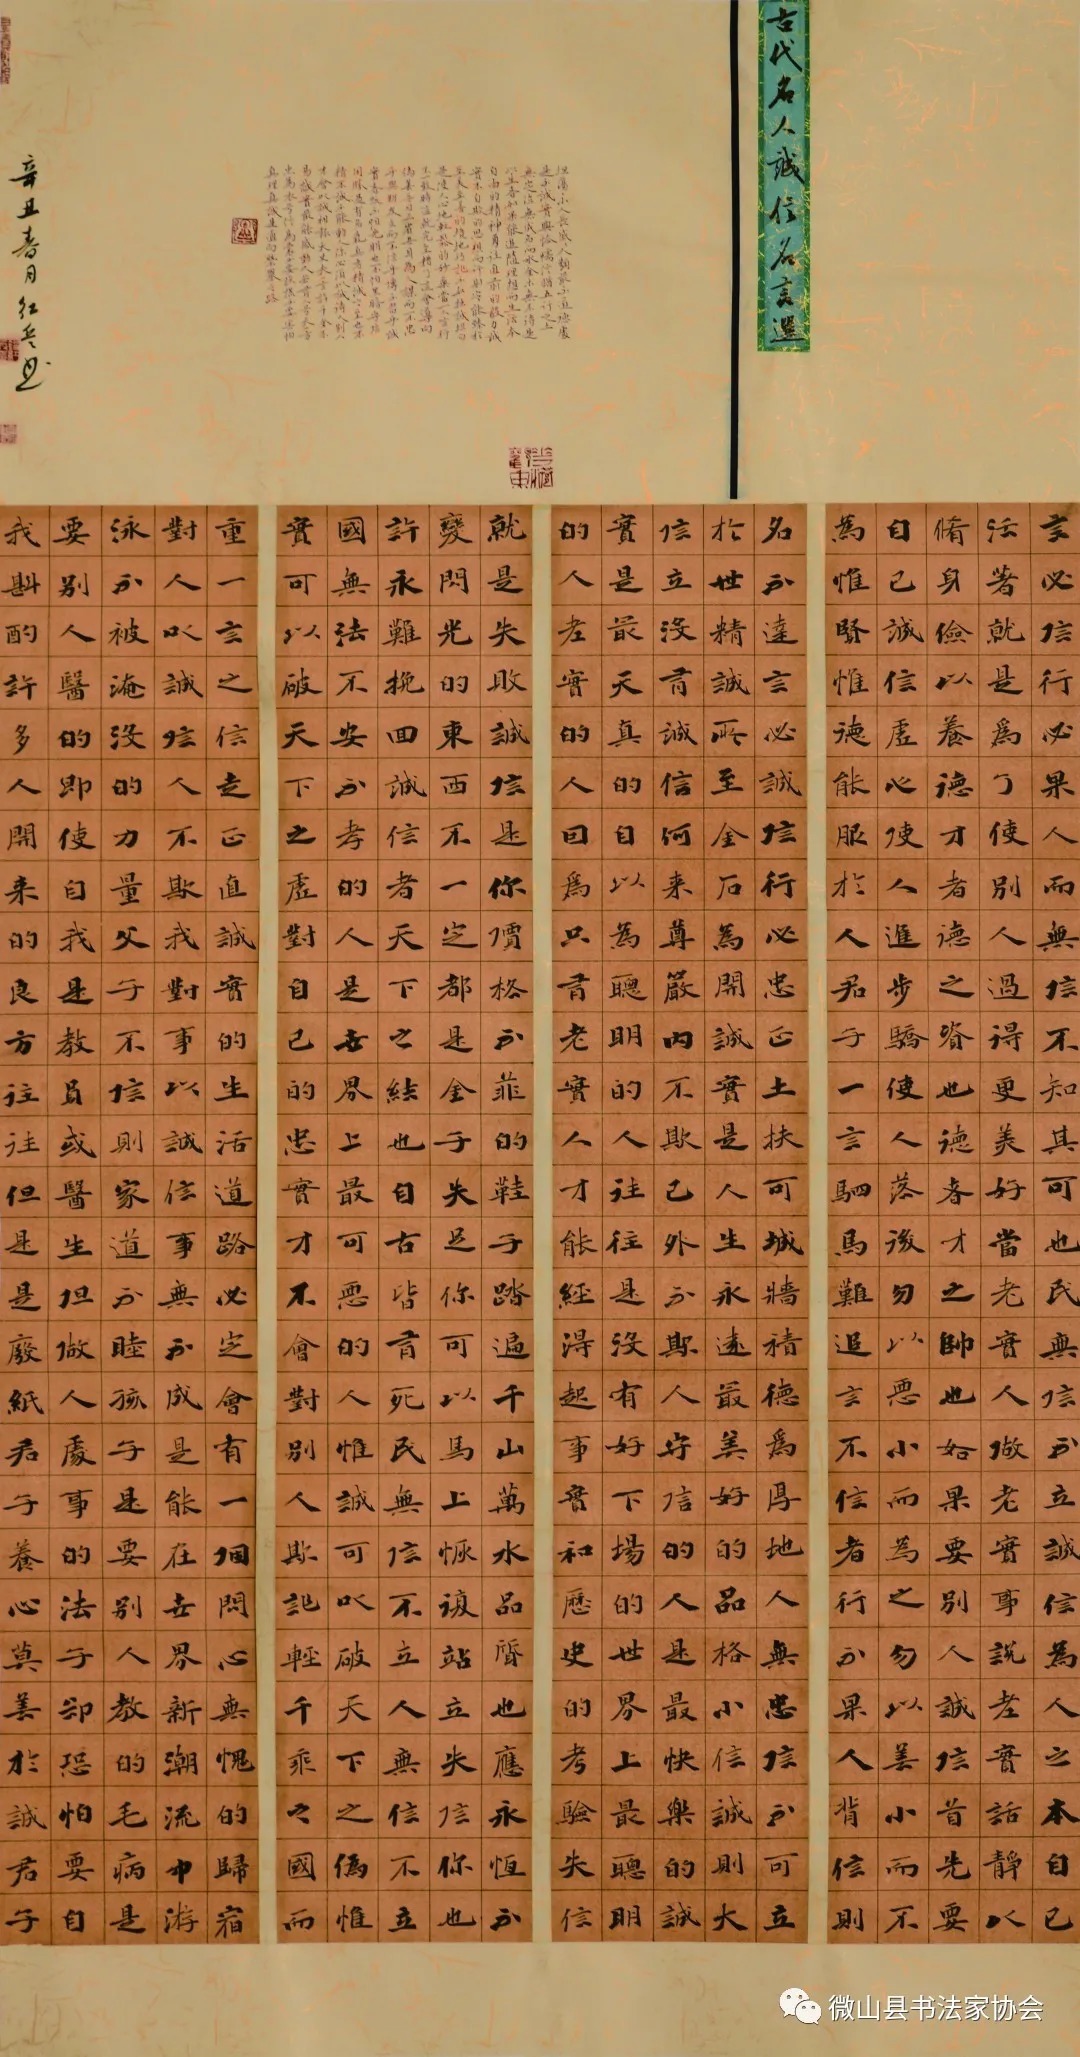 古代名人誠信名言選
言必信行必果人而無信不知其可也民無信不立誠信為人之本自己
活著就是為了使別人過得更美好當老實人做老實事說老實話靜以
脩身儉以養德才者德之資也德者才之帥也如果要別人誠信首先要
自己誠信虛心使人進步驕使人落後勿以惡小而為之勿以善小而不
為惟賢惟德能服於人君子一言駟馬難追言不信者行不果人背信則
名不達言必誠信行必忠正土扶可城牆積德為厚地人無忠信不可立
於世精誠所至金石為開誠實是人生永遠最美好的品格小信誠則大
信立沒有誠信何來尊嚴內不欺己外不欺人守信的人是最快樂的誠
實是最天真的自以為聰明的人往往是沒有好下場的世界上最聰明
的人老實的人因為只有老實人才能經得起事實和歷史的考驗失信
就是失敗誠信是你價格不菲的鞋子踏遍千山萬水品質也應永恆不
變閃光的東西不一定都是金子失足你可以馬上恢復站立失信你也
許永難挽回誠信者天下之結也自古皆有死民無信不立人無信不立
國無法不安不孝的人是世界上最可惡的人惟誠可以破天下之偽惟
實可以破天下之虛對自己的忠實才不會對別人欺詐輕千乘之國而
重一言之信走正直誠實的生活道路必定會有一個問心無愧的歸宿
對人以誠信人不欺我對事以誠信事無不成是能在世界新潮流中游
泳不被淹沒的力量父子不信則家道不睦孩子是要別人教的毛病是
要別人醫的即使自我是教員或醫生但做人處事的法子卻恐怕要自
我斟酌許多人開來的良方往往但是是廢紙君子養心莫善於誠君子
辛丑春月红兵书
微山县书法家协会